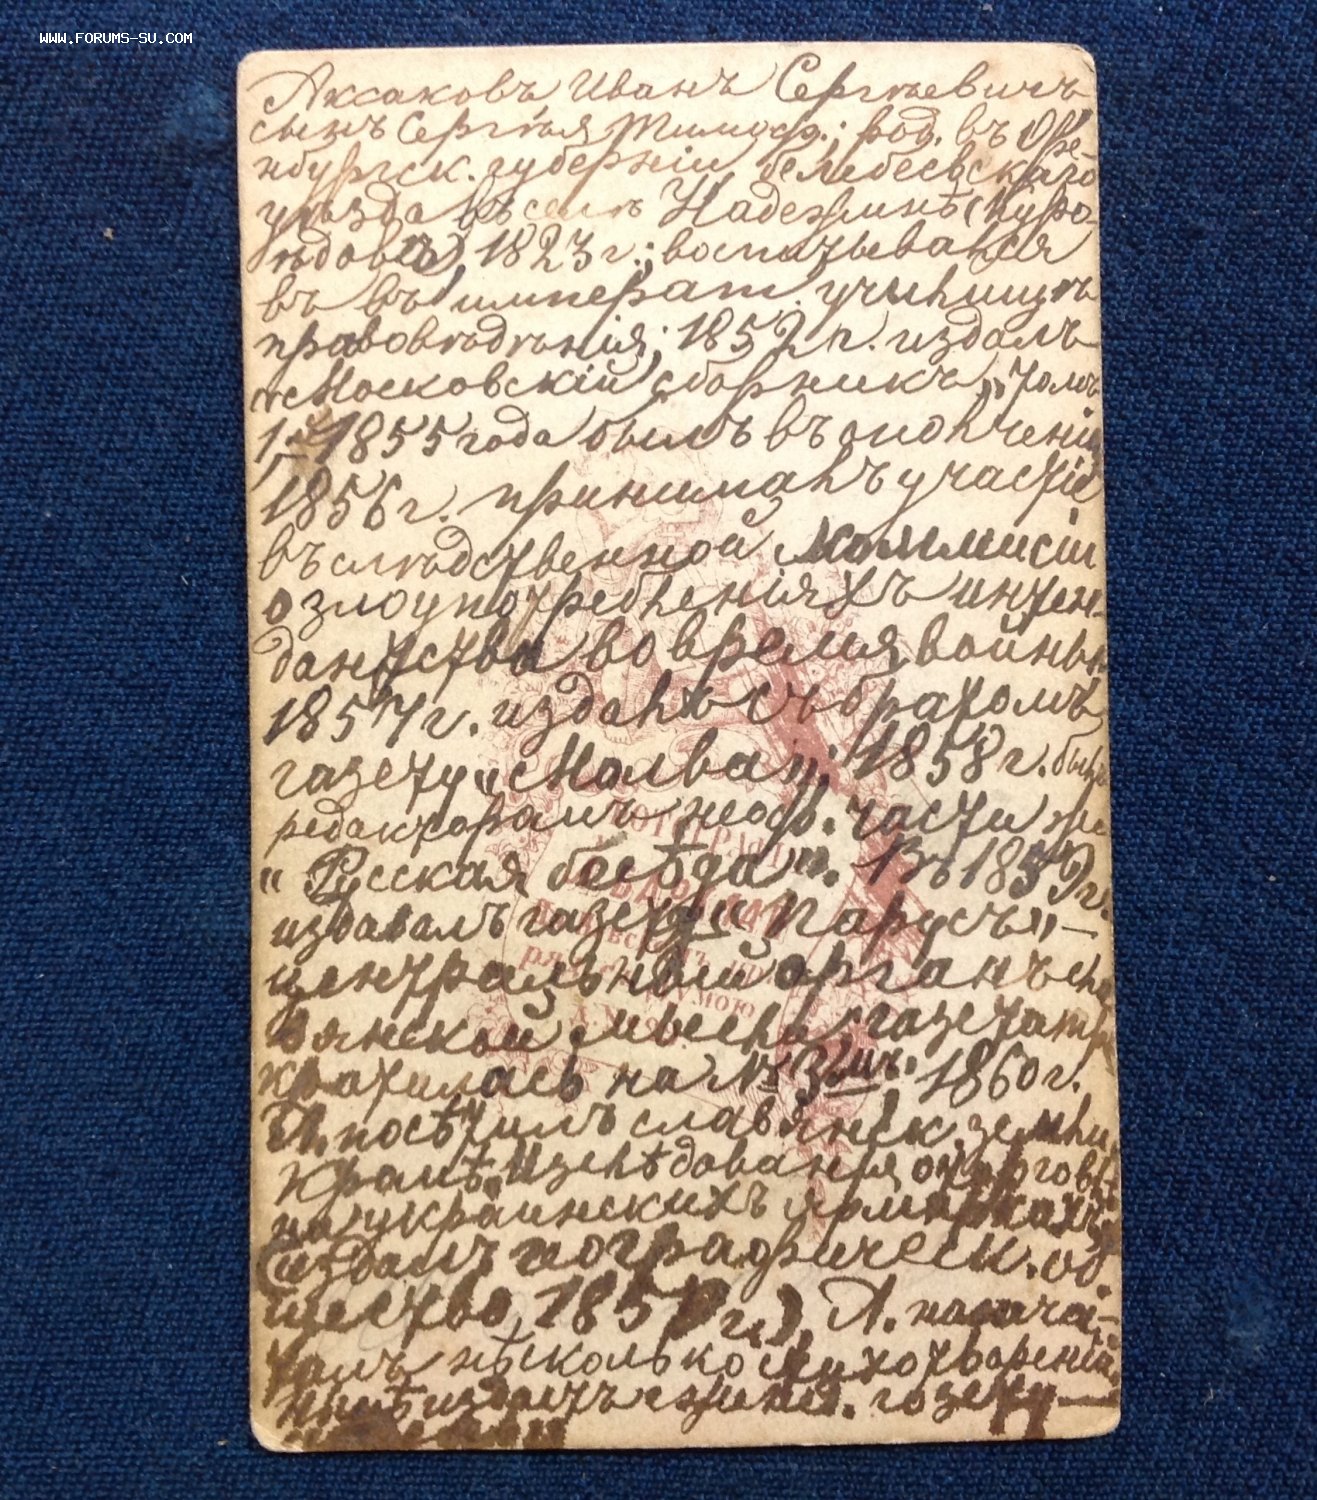 WWW.FORUMS-SU.COM
Аксаковъ Иванъ Сергѣевичъ
сынъ Сергѣя Тимоф.; род. въ Оре-
нбургск. губерніи белебеевскаго
уѣзда въ селѣ Надежинѣ (Куро-
ѣдово), 1823 г.; воспитывался
въ въ императ. училищѣ
правовѣдѣнія; 1852 г. издалъ
«Московскій сборникъ», томъ
1й 1855 года былъ въ ополченіи
1856 г. принималъ участіе
въ слѣдственной коммисіи
о злоупотребленіяхъ интен-
дантства во время войны
1857 г. издалъ съ братомъ
газету „Молва"; 1858 г. былъ
редакторомъ неоф. части
"Русская бесѣда". Въ 1859 г.
издавалъ газету „Парусъ" —
центральный органъ сла
вянской мысли газета пре
кратилась на № 3емъ. 1860 г.
А. посѣтилъ славянск. земли,
кромѣ, Изслѣдованія о торговлѣ
на украинскихъ ярмаркахъ
(издалъ географическ. об-
щество, 1859 г.), А. напеча-
талъ нѣсколько стихотвореній,
нынѣ издаетъ газету —
ФОТОГРАФІЯ